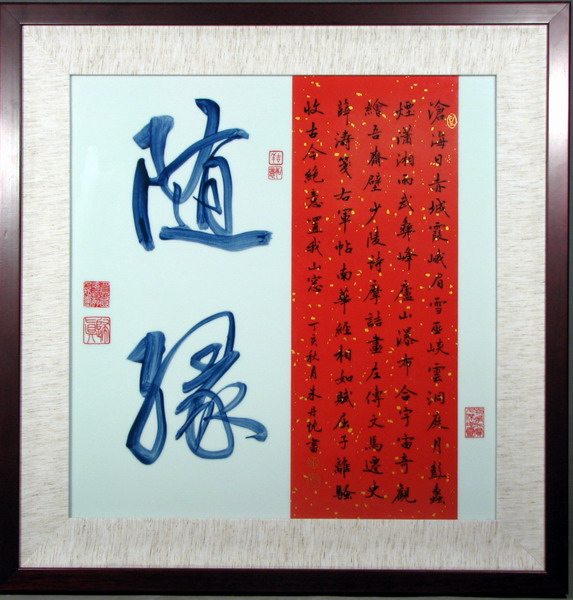 滄海日赤城霞峨眉雪巫峽雲洞庭月彭蠡
煙瀟湘雨武彝峰廬山瀑布合宇宙奇觀
繪吾齋壁少陵詩摩詰畫左傳文馬遷史
薛濤箋右軍帖南華經相如賦屈子離騷
收古今絶藝置我山窓 丁亥秋月
随緣